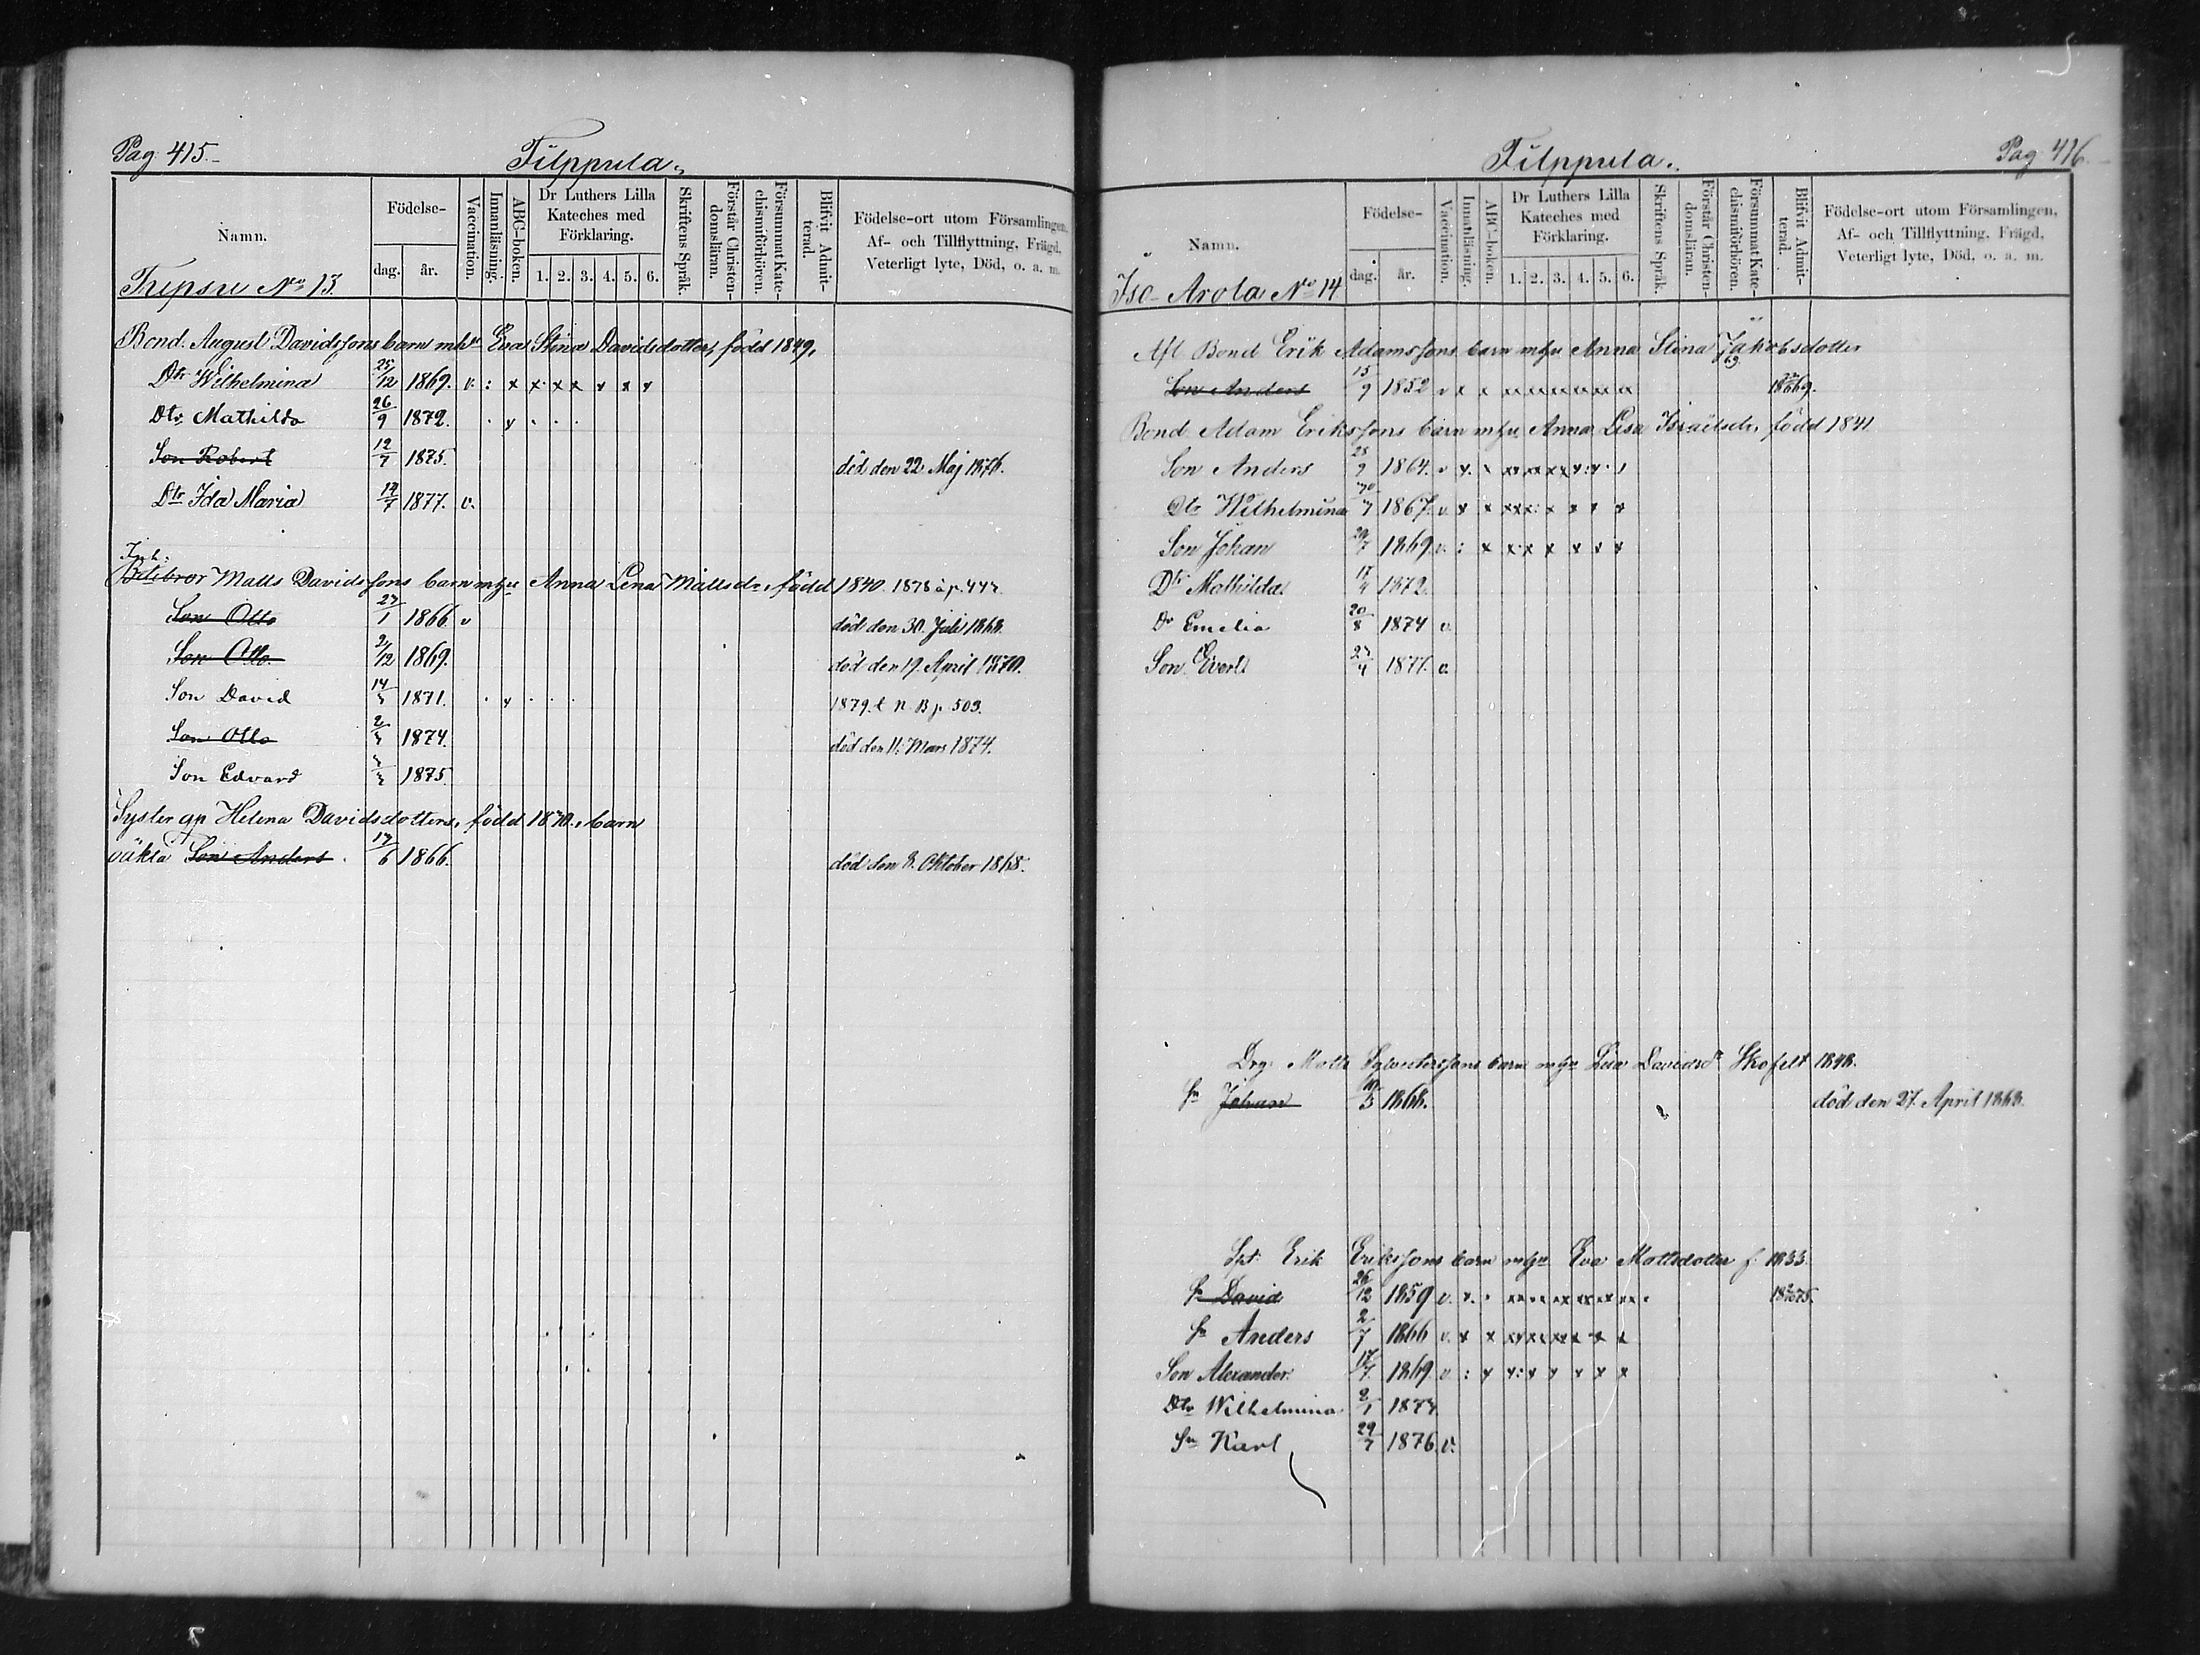 Pag 415.
Filppula.
Namn.
Födelse-
dag.
år.
Vaccination.
Innanläsning.
ABC-boken.
Dr Luthers Lilla
Kateches med
Förklaring.
1. 2. 3. 4. 5. 6.
Skriftens Språk.
Förstår Christen-
domsläran.
Försummat Kate-
chismiförhören.
Blifvit Admit-
terad.
Födelse-ort utom Församlingen,
Af- och Tillflyttning, Frägd,
Veterligt lyte, Död, o. a. m.
Tupsu No 13.
Bond. August Davidssons barn m hu Eva Stina Davidsdotter, född 1849,
Dtr Wilhelmina 25/12 1869. v. : x x x x x x x
Dtr Mathilda 26/9 1872.
Son Robert 12/7 1875. död den 22 Maj 1876.
Dtr Ida Maria 12/7 1877. v.
Inh.
Matts Davidssons barn m hu Anna Lena Mattsdr, född 1840. 1878
Son Otto 27/1 1866. v död den 30. Juli 1868.
Son Otto 2/12 1869. död den 19. April 1870.
Son David 1871. 1879. t N B p. 503.
Son Otto 1874. död den 11. Mars 1874.
Son Edvard 1875.
Syster gp Helena Davidsdotters, född barn
oäkta Son Anders 17/6 1866. död den 8. Oktober 1868.
Filppula.
Pag 416.
Namn.
Födelse-
dag.
år.
Vaccination.
Innanläsning.
ABC-boken.
Dr Luthers Lilla
Kateches med
Förklaring.
1. 2. 3. 4. 5. 6.
Skriftens Språk.
Förstår Christen-
domsläran.
Försummat Kate-
chismiförhören.
Blifvit Admit-
terad.
Födelse-ort utom Församlingen,
Af- och Tillflyttning, Frägd,
Veterligt lyte, Död, o. a. m.
Iso-Arola No 14
Afl Bond Erik Adamssons barn m hu Anna Stina Jakobsdotter
Son Anders 15/9 1852 v x x
Bond Adam Erikssons barn m hu Anna Lisa Israelsdr, född 1841
Son Anders 28/9 1864. v x.
Dtr Wilhelmina 1867. v x x
Son Johan 29/7 1869. v. : x x x x x x x
Dtr Mathilda 17/4 1872.
Dr Emelia 20/8 1874 v.
Son Evert 27/4 1877. v.
Drg. Matts Sylvesterssons barn m hu Lisa Davidsdr Skofelt 1848.
Sn Johan 1868. död den 27. April 1868.
Spt. Erik Erikssons barn m hu Eva Mattsdotter f. 1833.
Sn David 26/12 1859 v. x.
Sn Anders 2/7 1866 v. x x
Son Alexander. 17/7 1869. v : x x: x x x x x
Dtr Wilhelmina 2/1
Sn Karl 29/7 1876. v.